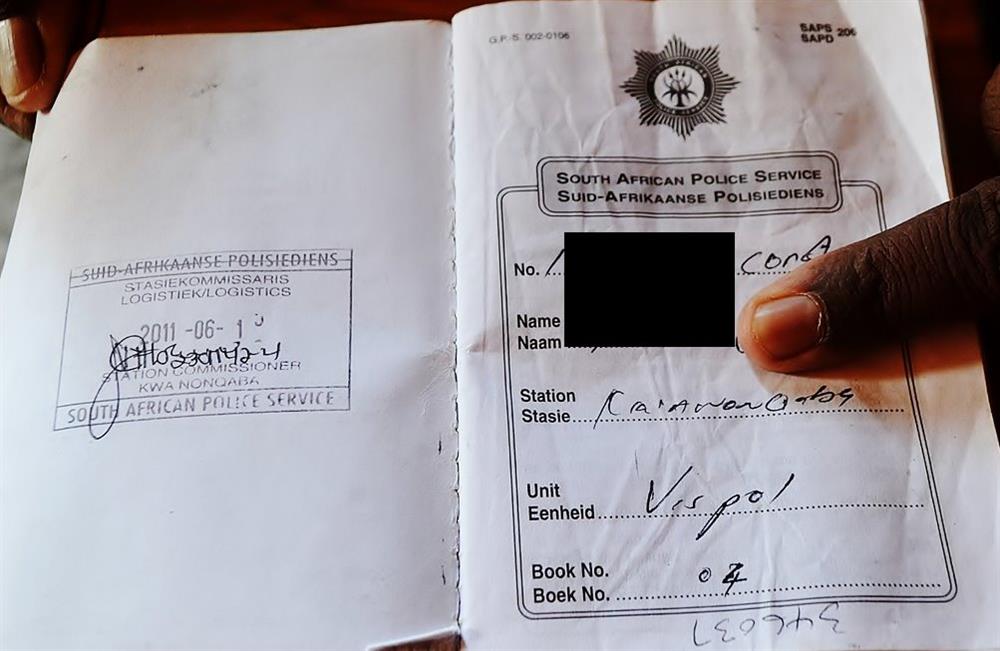 SUID-AFRIKAANSE POLISIEDIENS
STASIEKOMMISSARIS
LOGISTIEK/LOGISTICS
2011 -06- 1
STATION COMMISSIONER
KWA NONQABA
SOUTH AFRICAN POLICE SERVICE
G.P.-S. 002-0106
SAPS 206
SAPD
SOUTH AFRICAN POLICE SERVICE
SUID-AFRIKAANSE POLISIEDIENS
No.
Name
Naam
Station
Stasie
Unit
Eenheid Vispol
Book No.
Boek No. 04
346037